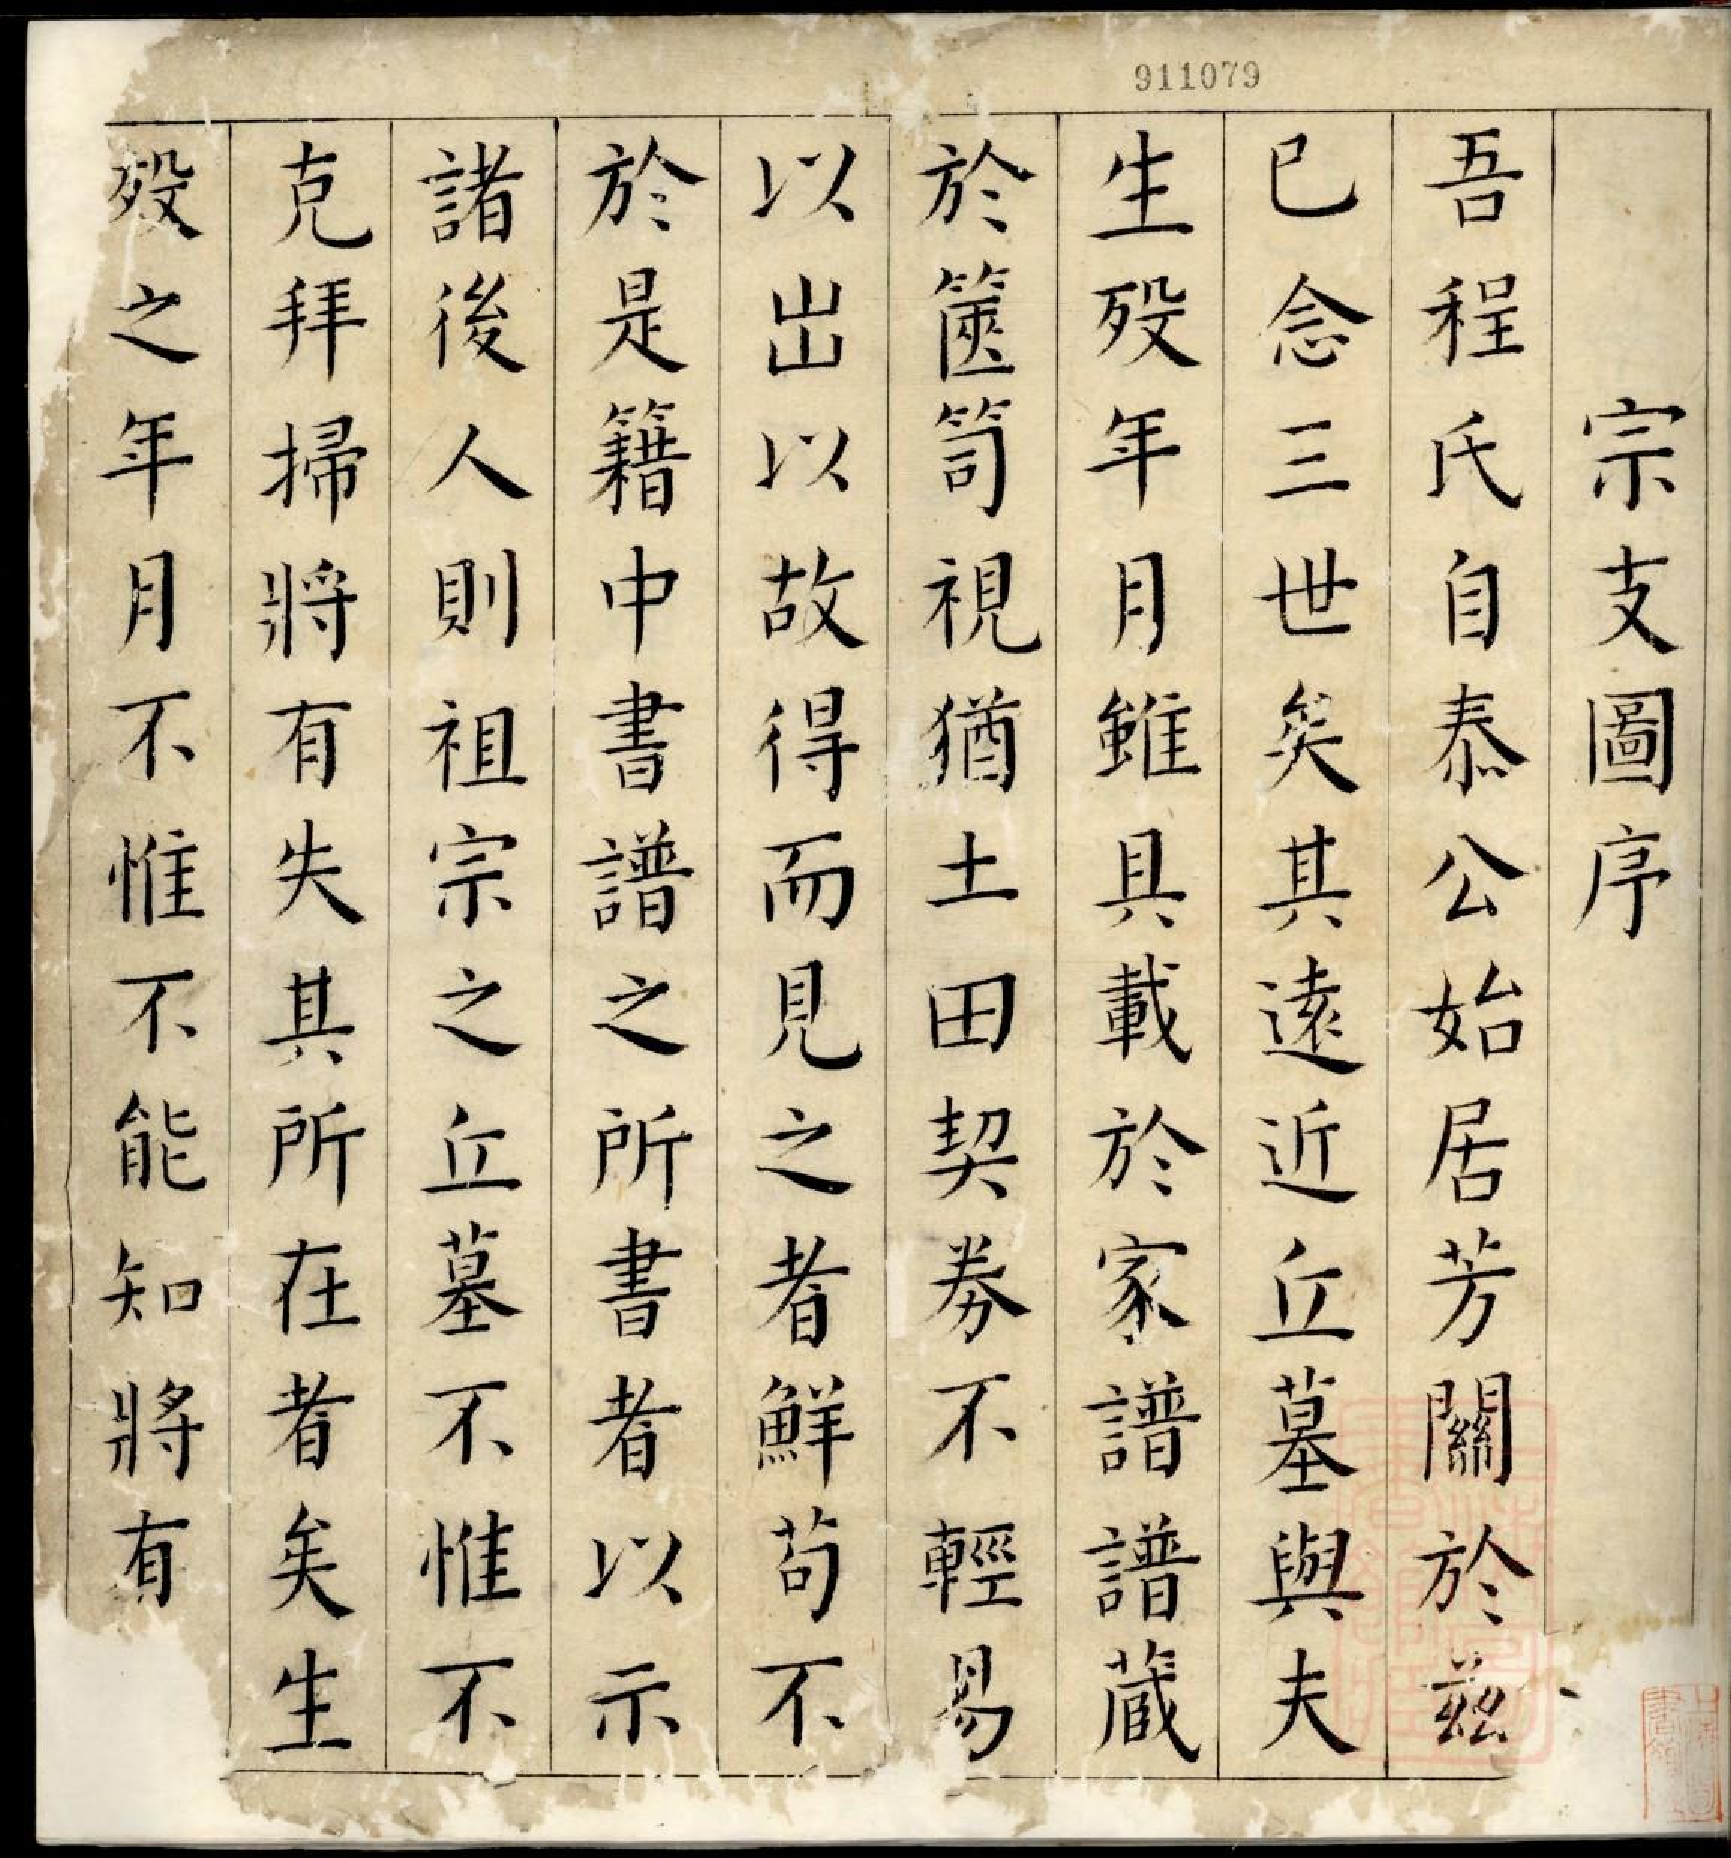 911079
宗支圖序
吾程氏自泰公始居芳關於茲
已念三世矣其遠近丘墓與夫
生歿年月雖具載於家譜譜藏
於篋笥視猶土田契券不輕易
以出以故得而見之者鮮苟不
於是籍中書譜之所書者以示
諸後人則祖宗之丘墓不惟不
克拜掃將有失其所在者矣生
歿之年月不惟不能知將有